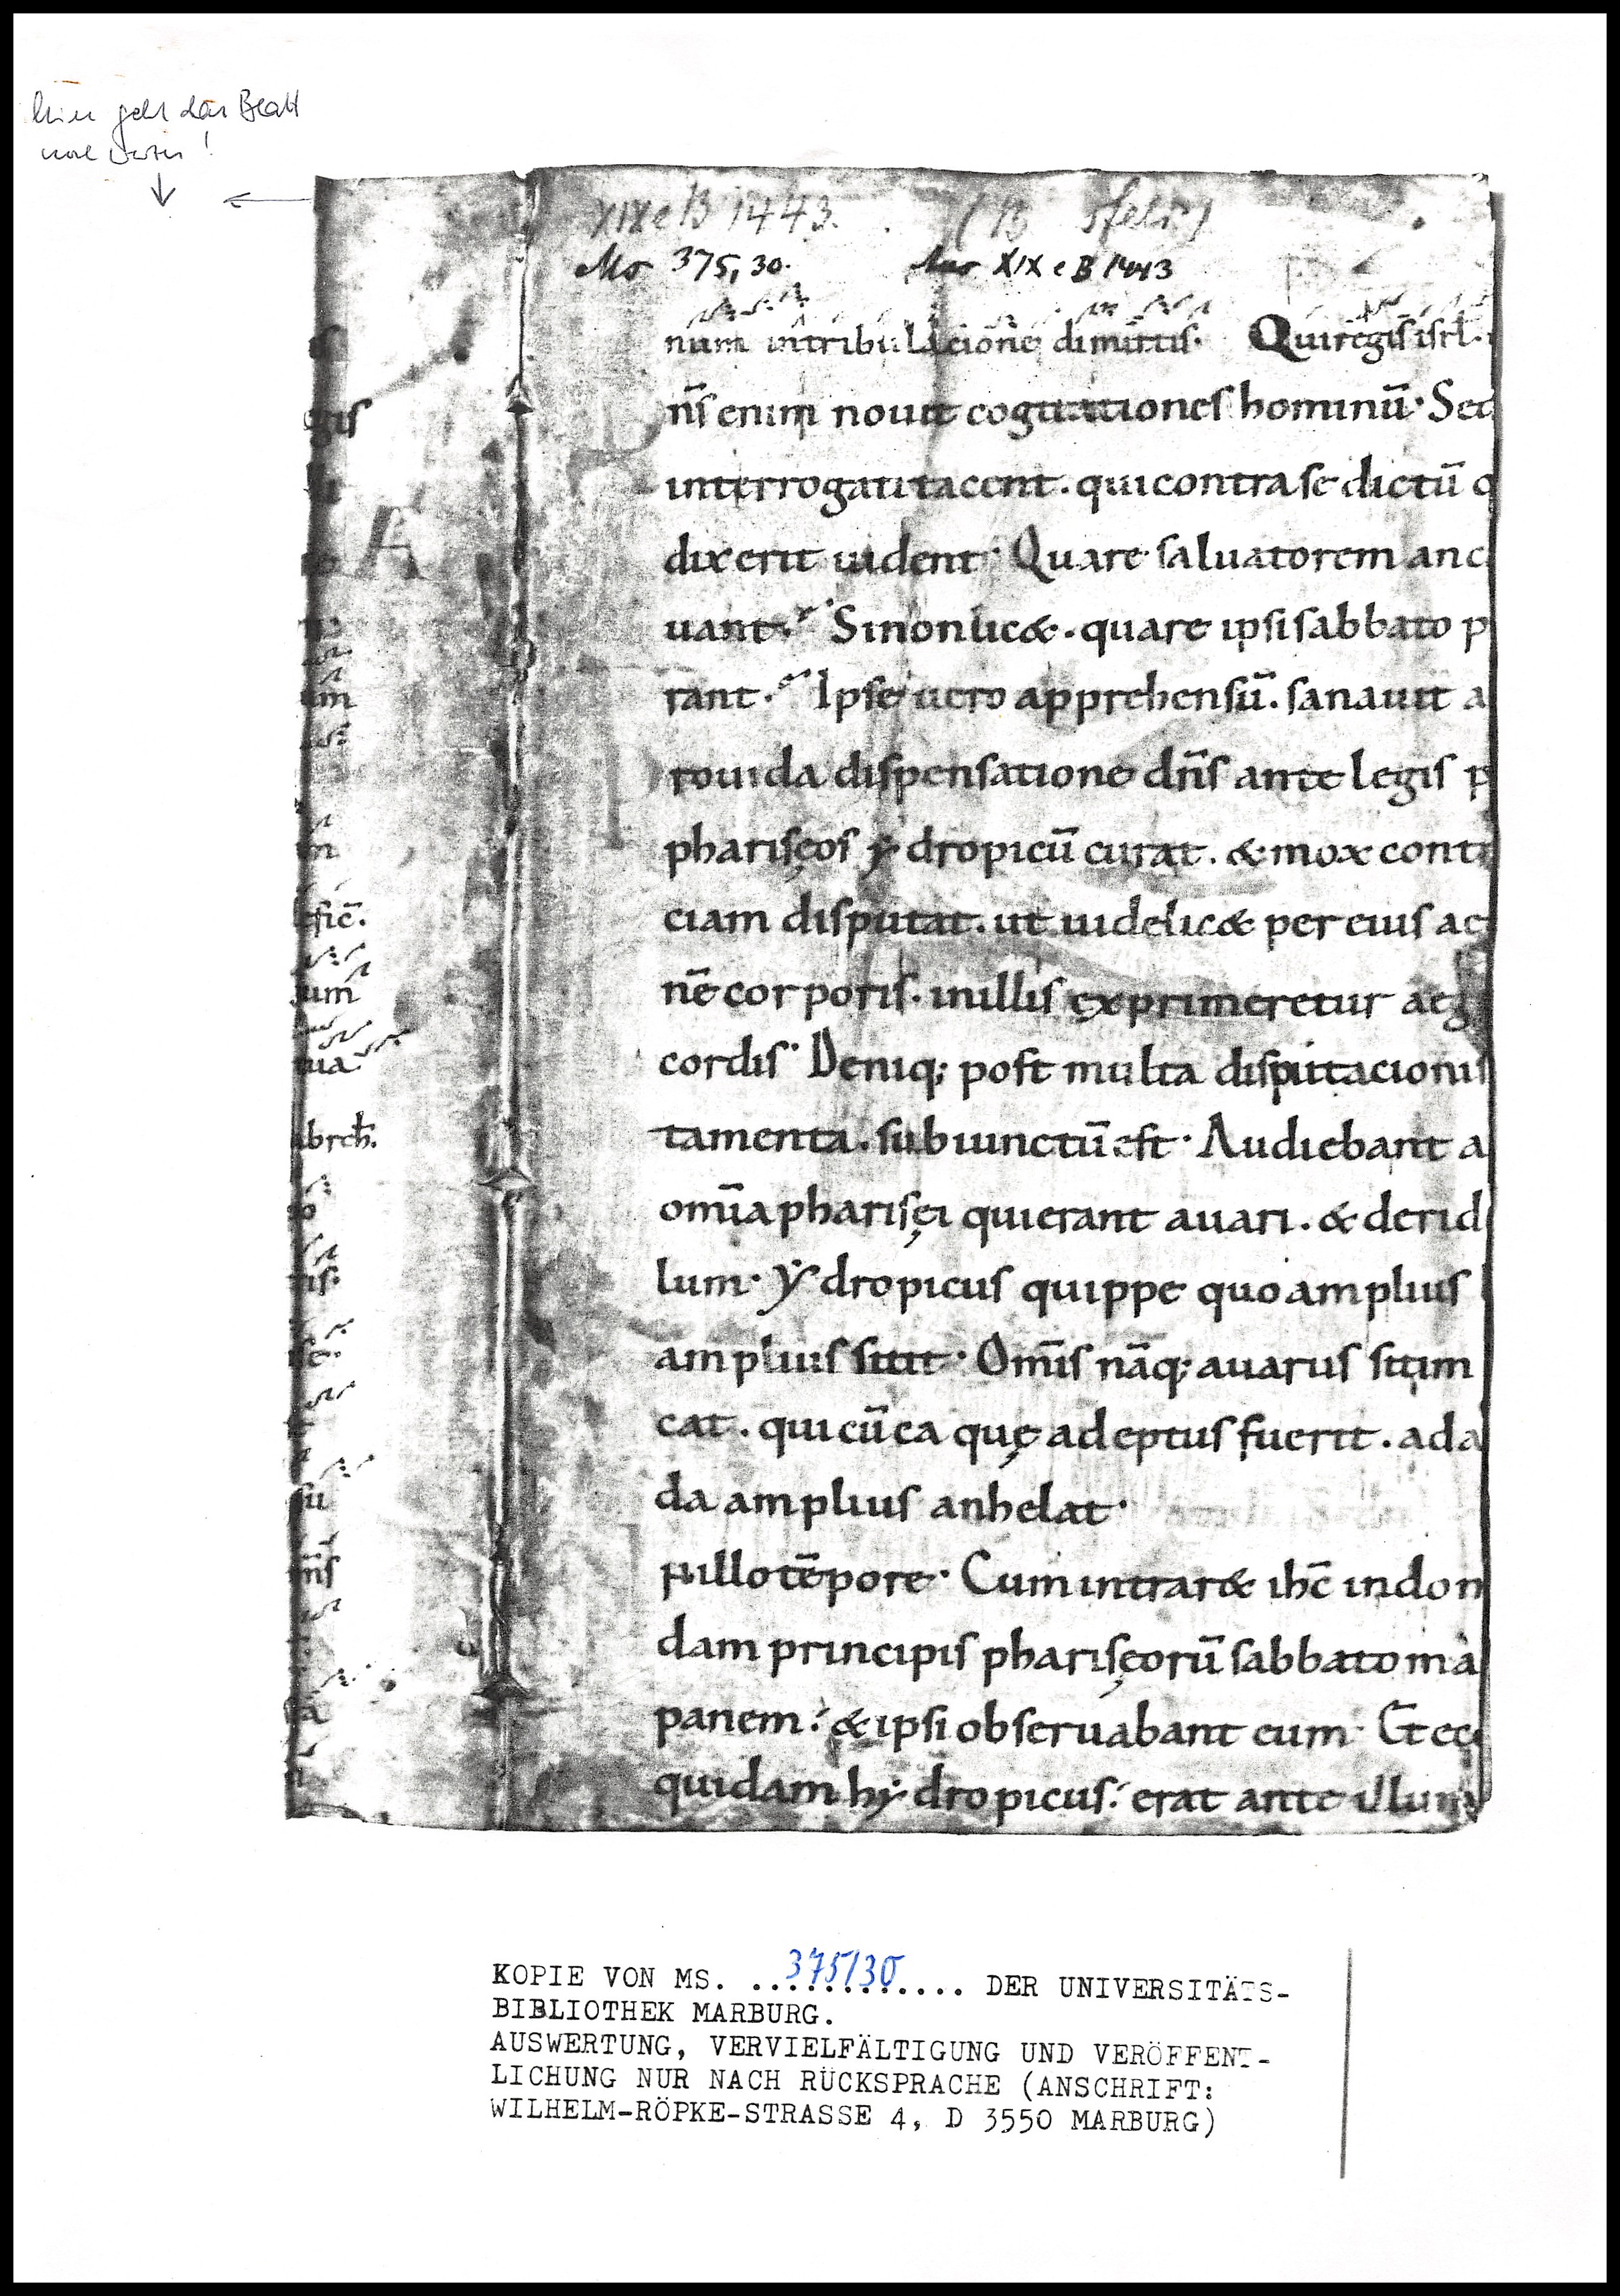 hier geht das Blatt
noch weiter!
XIX e B 1443.
Ms 375,30. Aus XIX e B 1443
num intribulacione dimittis. Qui regis isrł.
n̄s enim nouit cogitationes hominū. Sed
interrogati tacent. qui contra se dictū q
dixerit uident. Quare saluatorem anc
uant. Si non lic&. quare ipsi sabbato p
rant. Ipse uero apprehensū. sanauit a
rouida dispensatione dn̄s ante legis p
pharisęos ẏdropicū curat. & mox cont
ciam disputat. ut uidelic& per eius ae
nē corporis. in illis exprimeretur aeg
cordis. Deniq; post multa disputacionis
tamenta. subiunctū est. Audiebant a
om̄ia pharisęi qui erant auari. & derid
lum. Ẏdropicus quippe quo amplius
amplius sitit. Om̄is nāq; auarus sitim
cat. qui cū ea quę adeptus fuerit. ad a
da amplius anhelat.
N illo tēpore. Cum intrar& ihc̄ in dom
dam principis pharisęorū sabbato ma
panem. & ipsi obseruabant eum. Et ecc
quidam hẏdropicus. erat ante illum
gis
A
um
sfic̄.
sum
tua
abrch.
tis.
su
m̄s
KOPIE VON MS. ..375/30.... DER UNIVERSITÄTS-
BIBLIOTHEK MARBURG.
AUSWERTUNG, VERVIELFÄLTIGUNG UND VERÖFFENT-
LICHUNG NUR NACH RÜCKSPRACHE (ANSCHRIFT:
WILHELM-RÖPKE-STRASSE 4, D 3550 MARBURG)